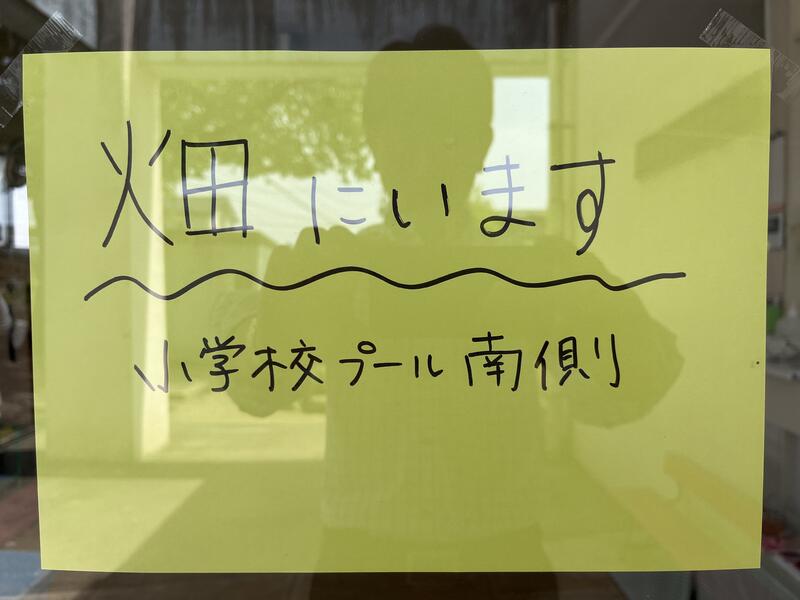 畑にいます
小学校プール南側